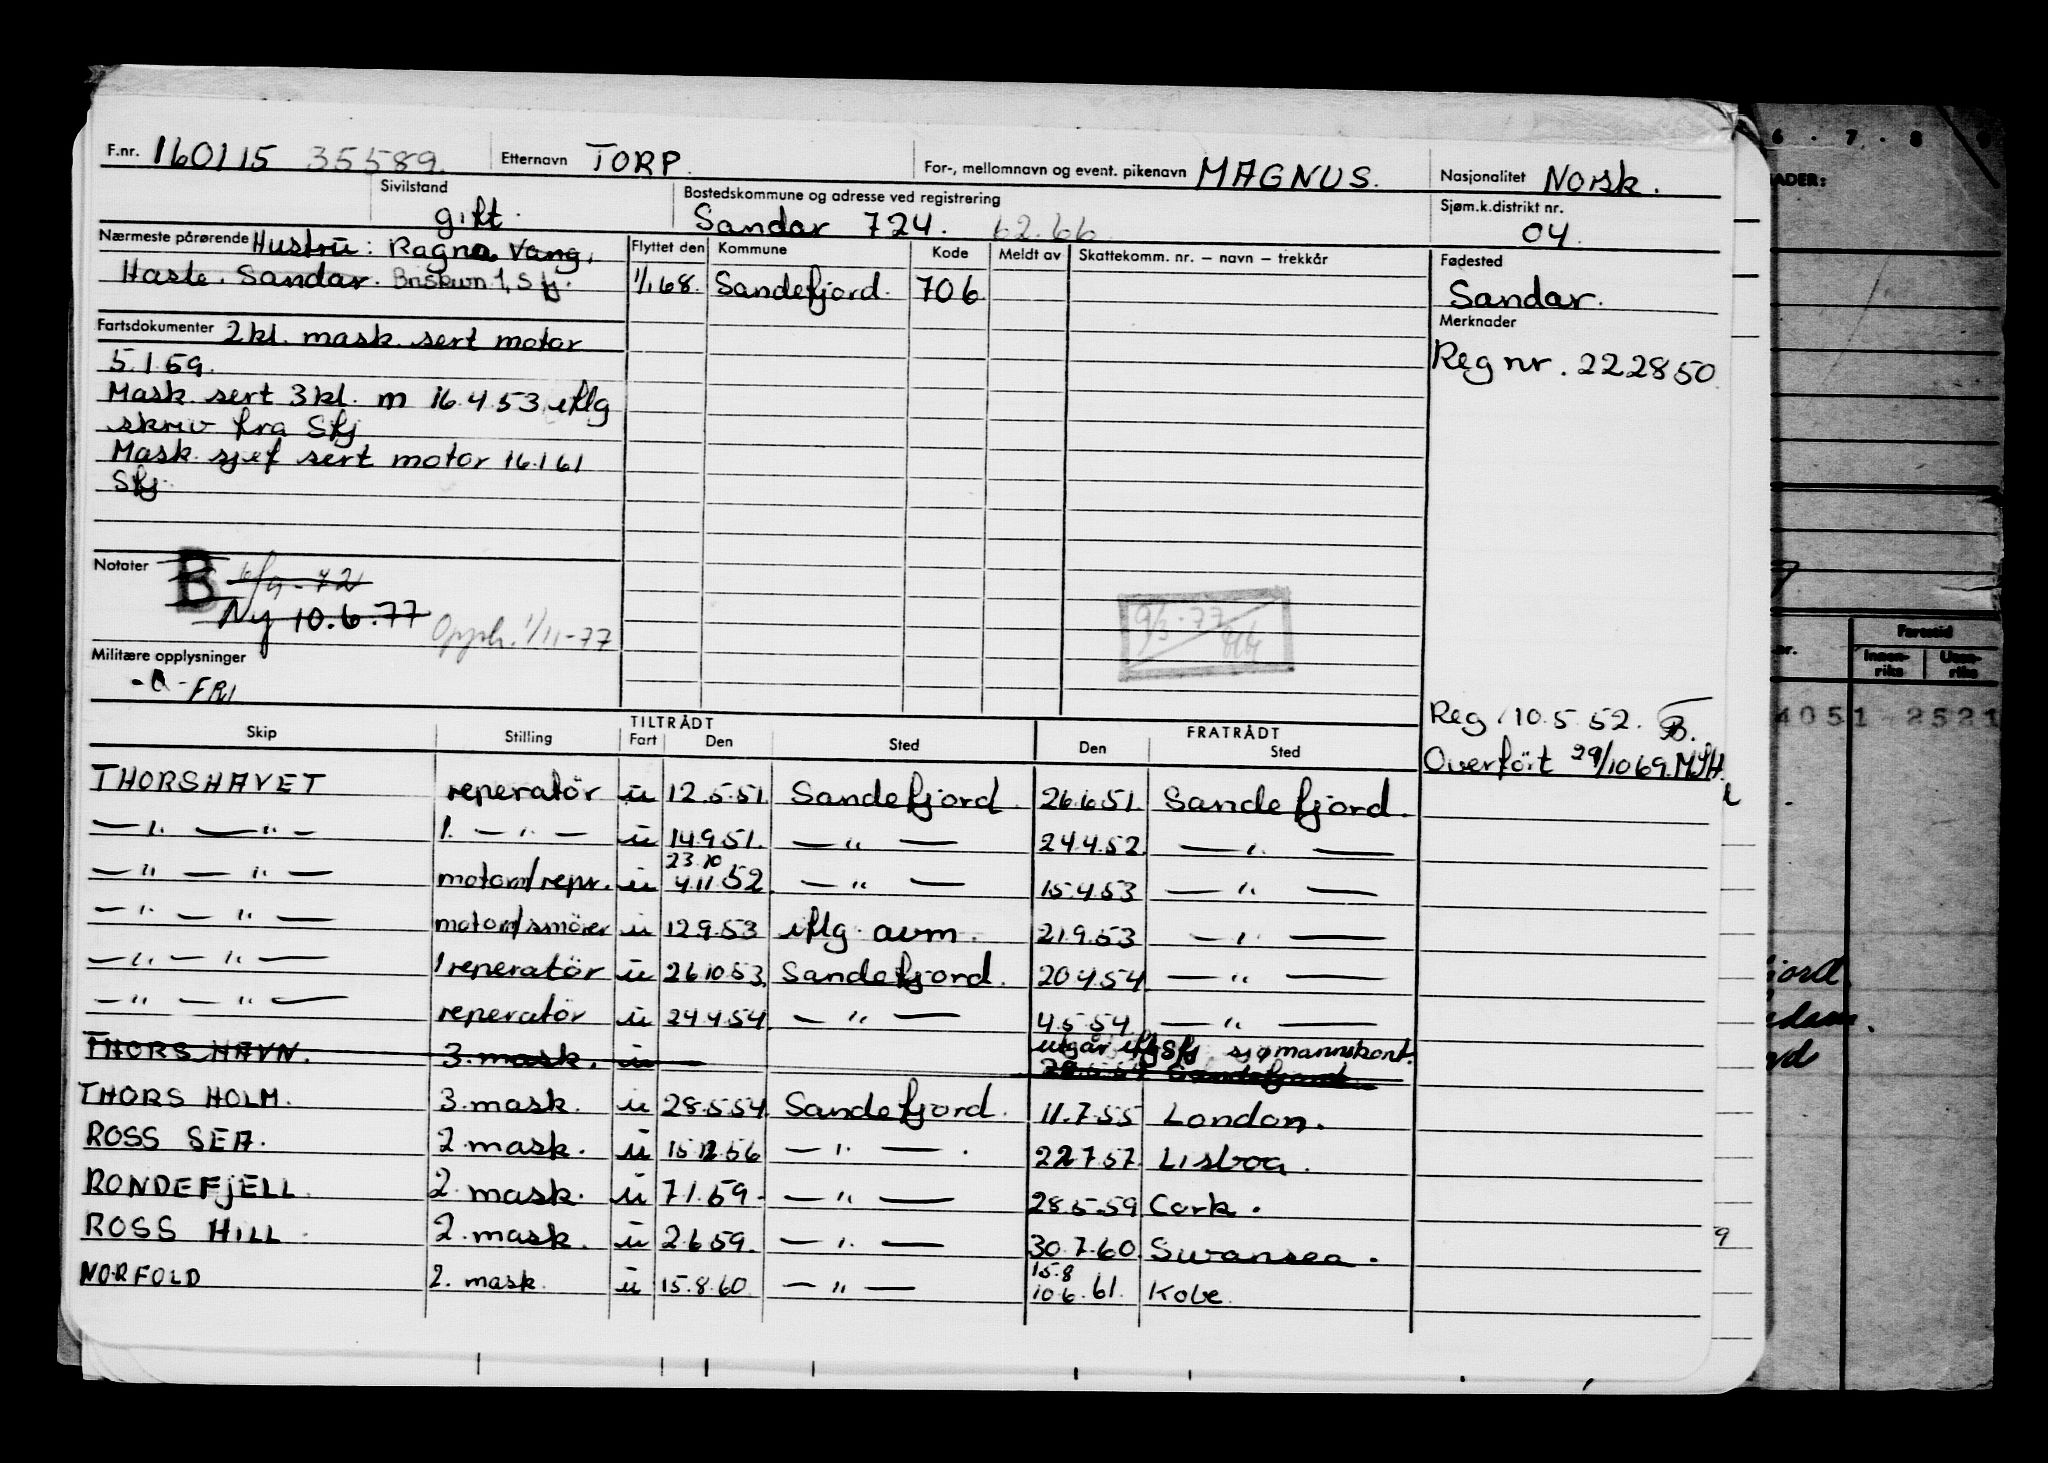 F.nr. 160115 35589. Etternavn TORP. For-, mellomnavn og event. pikenavn MAGNUS. Nasjonalitet Norsk.
Sivilstand gift. Bostedskommune og adresse ved registrering Sandar 724. 62.66 Sjøm.k.distrikt nr. 04.
Nærmeste pårørende Hustru: Ragna Vang, Flyttet den Kommune Kode Meldt av Skattekomm. nr. – navn – trekkår Fødested
Hasle. Sandar. 1, Sfj. 1/1 68. Sandefjord. 706 Sandar.
Fartsdokumenter 2 kl. mask. sert motor Merknader
5.1.59. Reg nr. 222850.
Mask. sert 3 kl. m 16.4.53 iflg
skriv fra Sfj
Mask. sjef sert motor 16.1 61
Sfj.
Notater B 6/9-72
Ny 10.6.77 Opph. 1/11-77 9/3-77
Militære opplysninger
FRI
Reg. 10.5.52. B.
Overført 29/10 69.
TILTRÅDT FRATRÅDT
Skip Stilling Fart Den Sted Den Sted
THORSHAVET reperatör u 12.5.51. Sandefjord. 26.6.51. Sandefjord.
— " — " — 1. — " — u 14.9.51. — " — 24.4.52. — " —
— " — " — motorm/repr. u 23.10 4.11.52. — " — 15.4.53 — " —
— " — " — motorm/smörer u 12.9.53 iflg avm. 21.9.53 — " —
— " — " — 1 reperatör u 26.10.53. Sandefjord. 20.4.54. — " —
— " — " — reperatör u 24.4.54. — " — 4.5.54. — " —
THORSHAVN. 3. mask. u — utgår iflg Sfj sjømannskont.
THORS HOLM. 3. mask. u 28.5.54. Sandefjord. 11.7.55 London.
ROSS SEA. 2. mask. u 15.12.56 — " — . 22.7.57. Lisboa.
RONDEFJELL. 2. mask. u 7.1.59. — " — 28.5.59 Cork.
ROSS HILL. 2. mask. u 2.6.59. — " — 30.7.60. Swansea.
NORFOLD 2. mask. u 15.8.60. — " — 15.8 10.6.61. Kobe.
6 . 7 . 8 . 9
ADER:
Farestid
Innen-riks Uten-riks
4051 2521